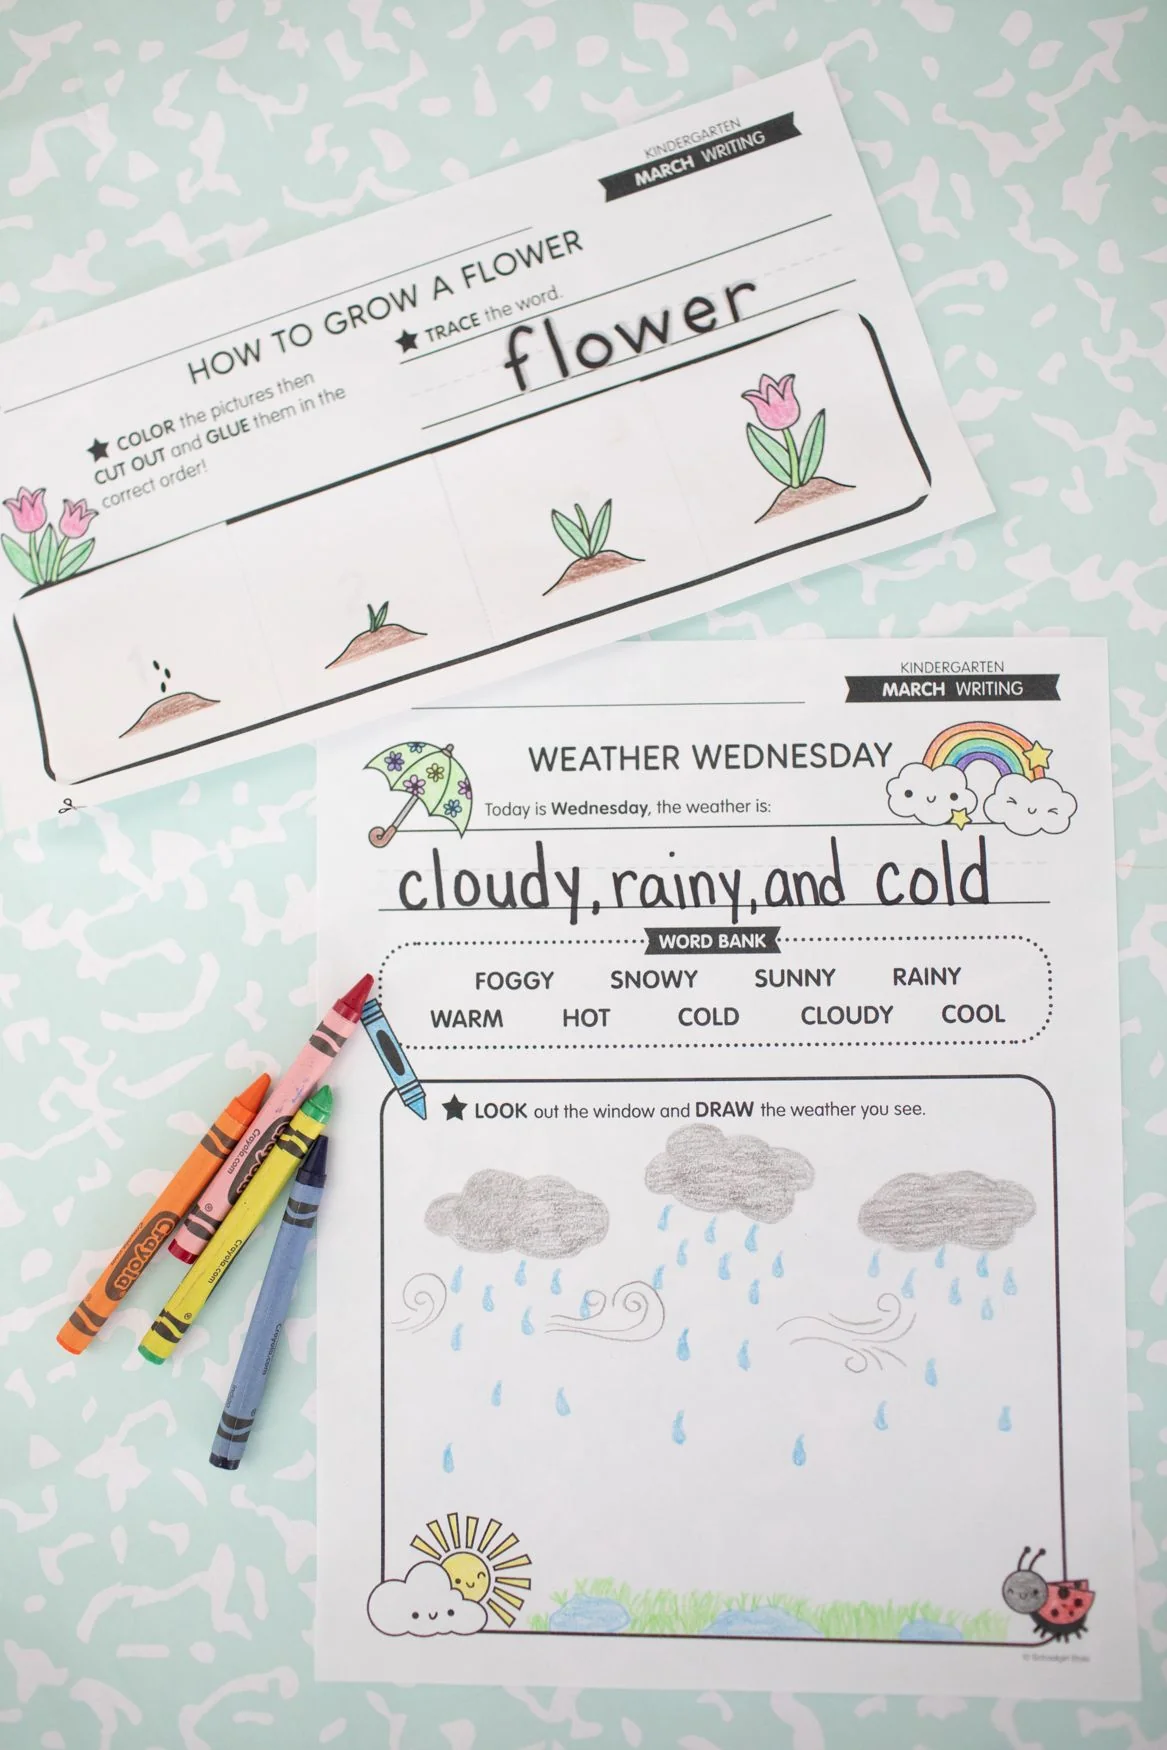 KINDERGARTEN
MARCH WRITING
HOW TO GROW A FLOWER
★ TRACE the word.
flower
★ COLOR the pictures then
CUT OUT and GLUE them in the
correct order!
KINDERGARTEN
MARCH WRITING
WEATHER WEDNESDAY
Today is Wednesday, the weather is:
cloudy, rainy, and cold
WORD BANK
FOGGY SNOWY SUNNY RAINY
WARM HOT COLD CLOUDY COOL
★ LOOK out the window and DRAW the weather you see.
Crayola
Crayola.com
Crayola
Crayola.com
Crayola.com
© Schoolgirl Style